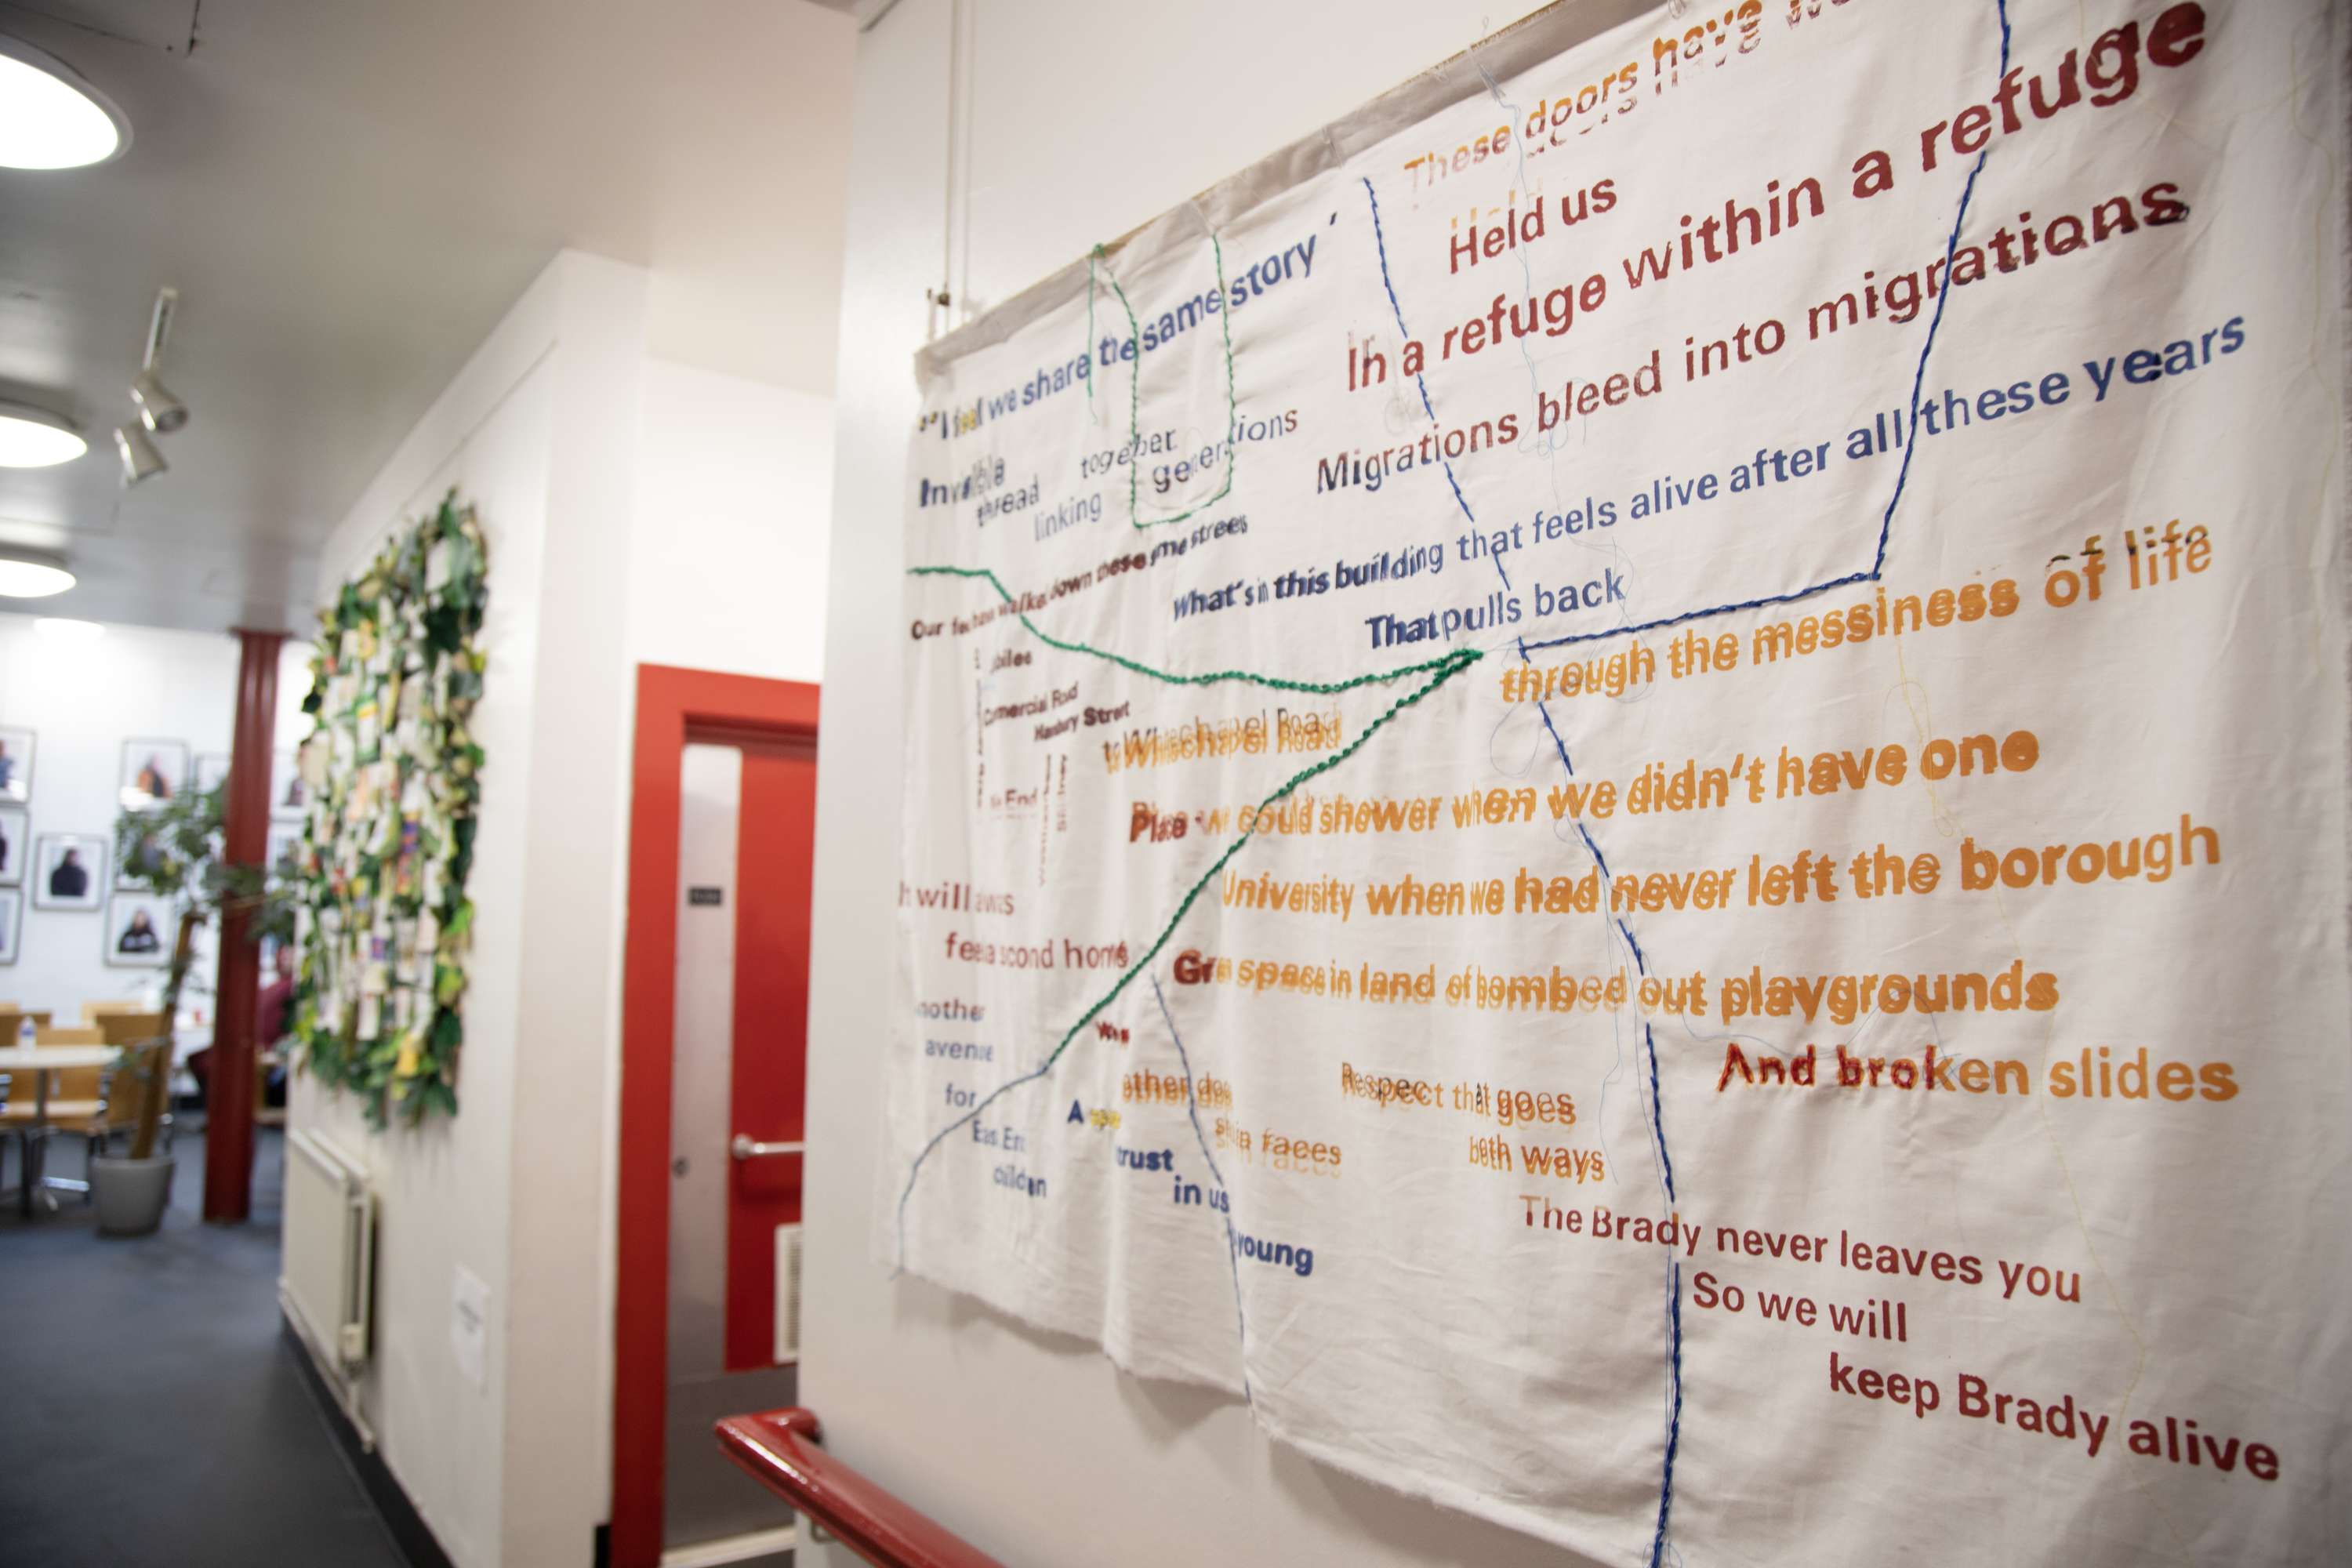 These doors have
Held us
In a refuge within a refuge
Migrations bleed into migrations
What's in this building that feels alive after all these years
That pulls back
through the messiness of life
"I feel we share the same story'
Invisible
thread
linking
together
generations
Our walked down these same streets
Commercial Road
Hanbury Street
End
to Whitechapel Road
Place we could shower when we didn't have one
University when we had never left the borough
space in land of bombed out playgrounds
And broken slides
It will always
feel a second home
another
avenue
for
East End
children
A
other
faces
trust
in us
young
Respect that goes
both ways
The Brady never leaves you
So we will
keep Brady alive